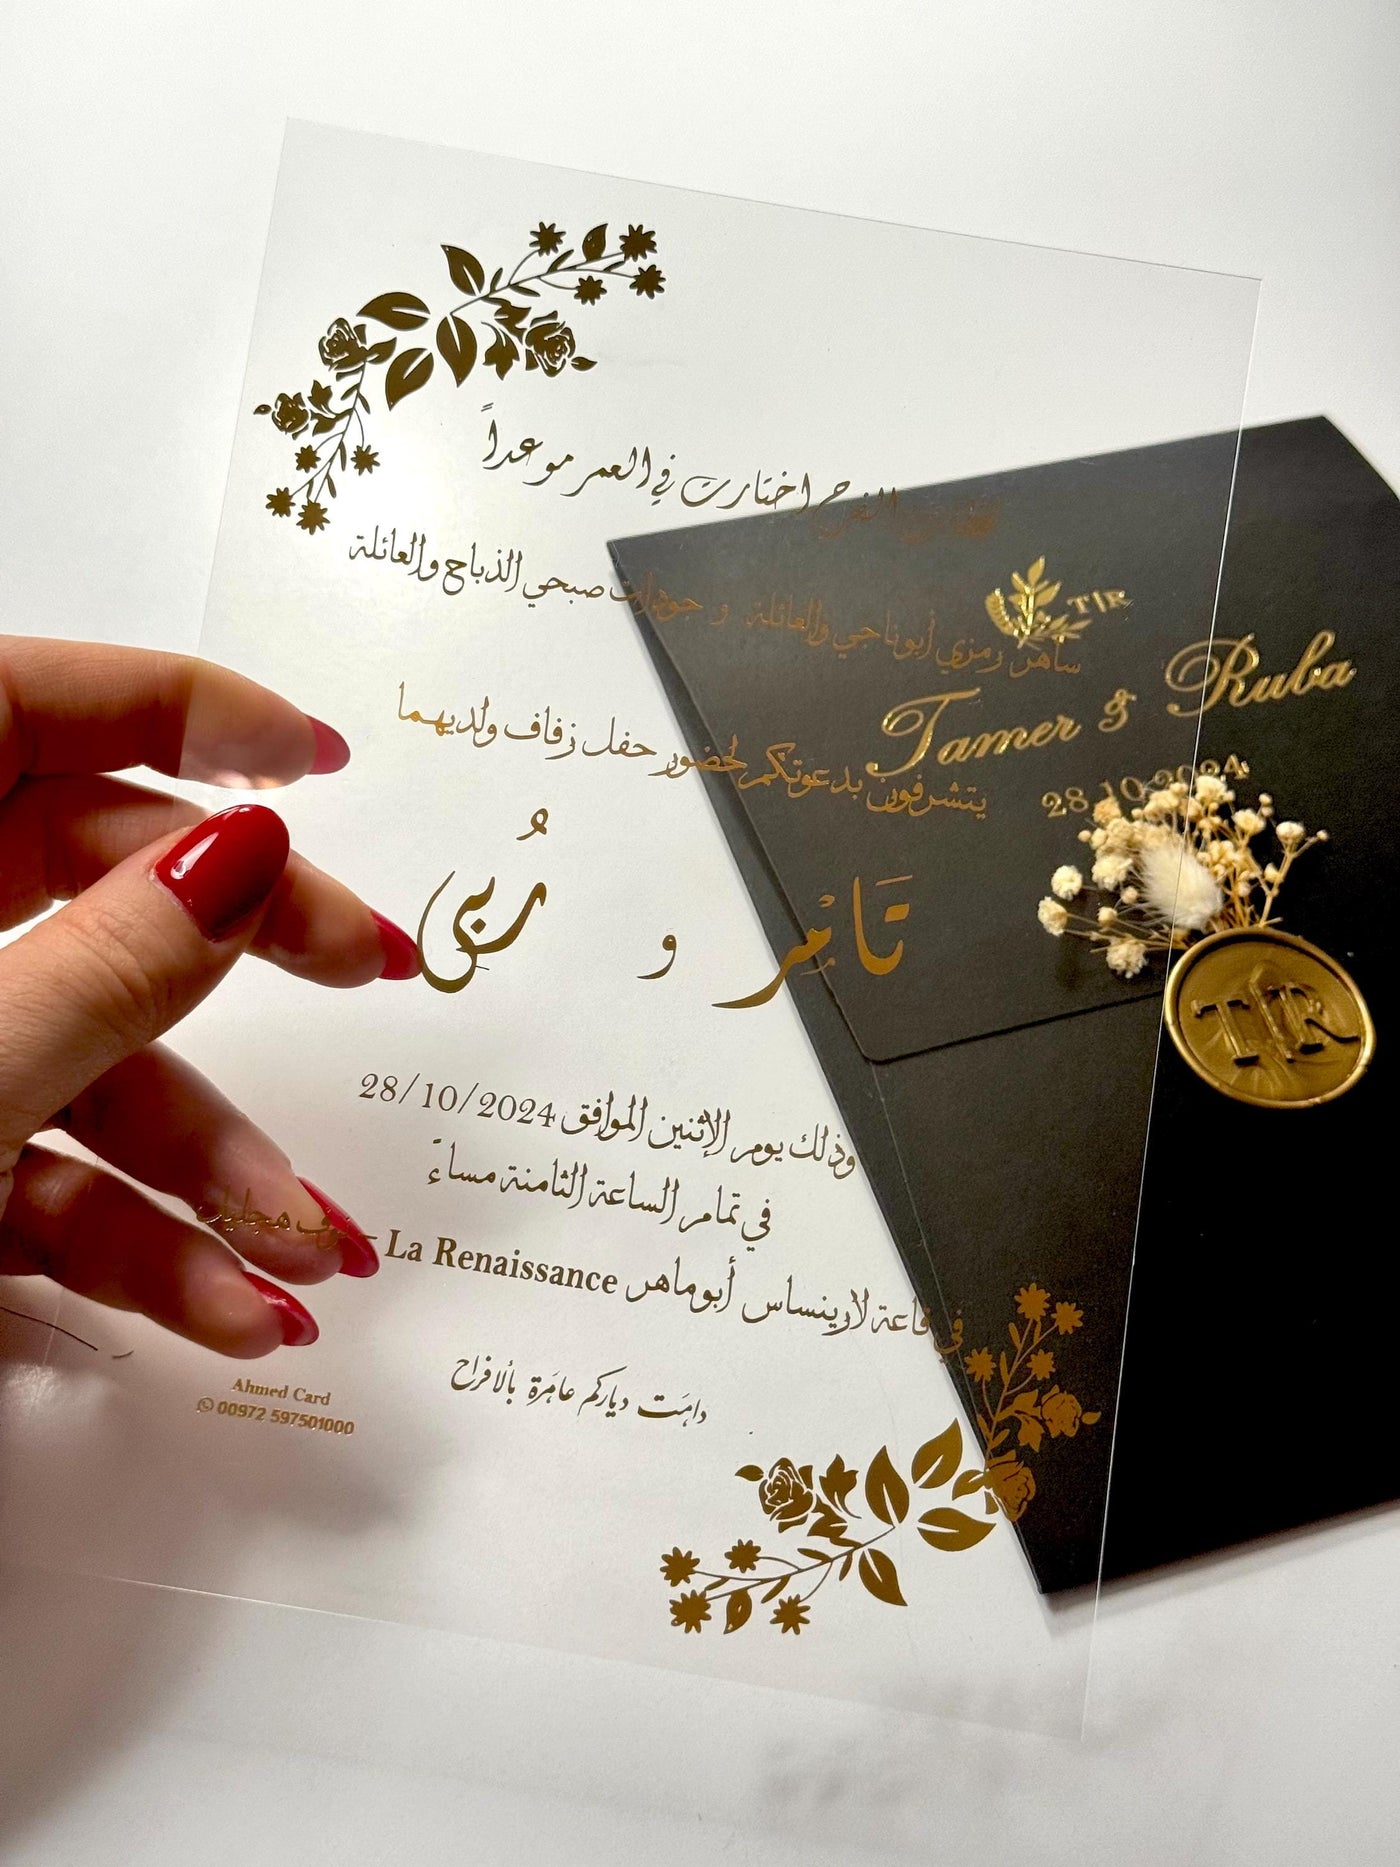 الفرح اختارت في العمر موعداً
ساهر رمزي أبوناجي والعائلة و جودات صبحي الذباح والعائلة
يتشرفون بدعوتكم لحضور حفل زفاف ولديهما
تَامِر و رُبى
وذلك يوم الإثنين الموافق 28/10/2024
في تمام الساعة الثامنة مساءً
في قاعة لارينساس أبوماهر La Renaissance - هجليل
دامَت دياركم عامَرة بألافراح
Ahmed Card
00972 597501000
T|R
Tamer & Ruba
28.10.2024
T|R